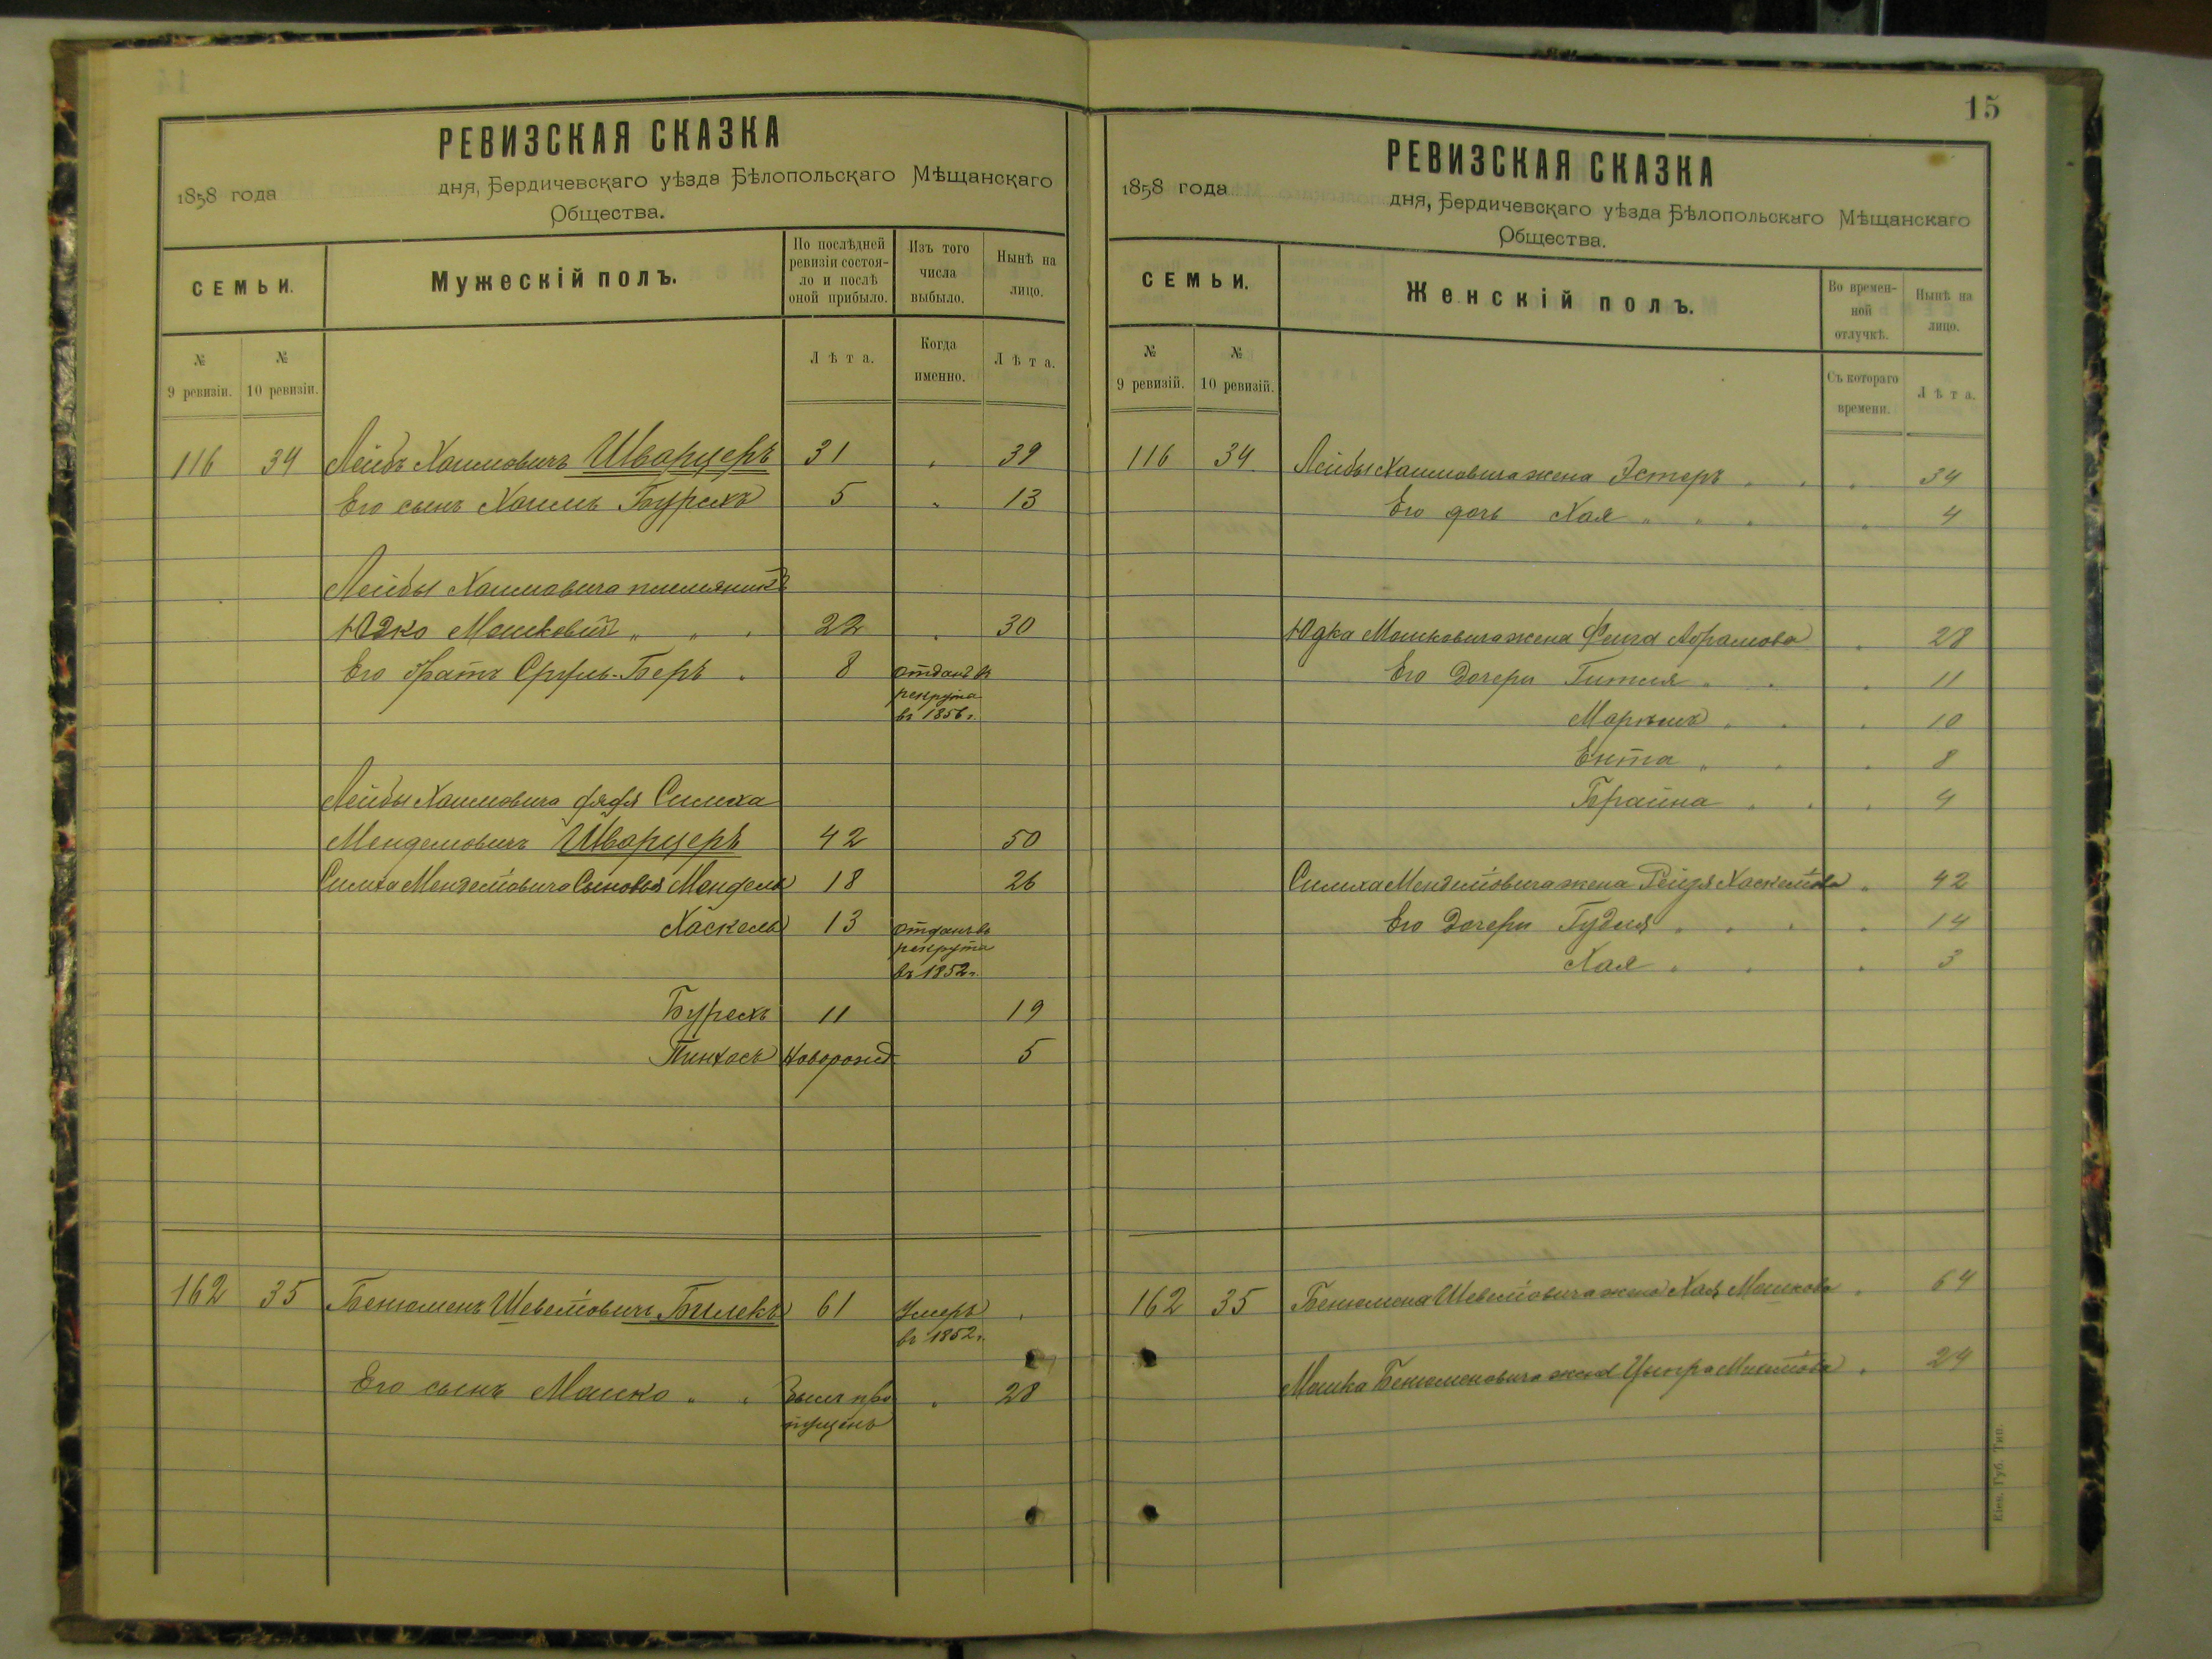 РЕВИЗСКАЯ СКАЗКА
1858 года дня, Бердичевскаго уѣзда Бѣлопольскаго Мѣщанскаго
Общества.
СЕМЬИ.
Мужескій полъ.
По послѣдней ревизіи состоя-
ло и послѣ оной прибыло.
Изъ того числа выбыло.
Нынѣ на лицо.
№ 9 ревизіи.
№ 10 ревизіи.
Лѣта.
Когда именно.
Лѣта.
116 34 Лейбъ Хаимовичъ Шварцеръ 31 „ 39
Его сынъ Хаимъ Бурехъ 5 „ 13
Лейбы Хаимовича племяникъ
Юдко Мошковичъ „ „ „ 22 „ 30
Его братъ Сруль-Беръ „ 8 отданъ в
рекрута
въ 1856 г.
Лейбы Хаимовича дядя Симха
Менделовичъ Шварцеръ 42 50
Симха Менделіовича Сыновья Мендель 18 26
Хаскель 13 отданъ въ
рекрута
въ 1852 г.
Бурехъ 11 19
Пинхасъ Новорожд. 5
162 35 Бенюменъ Шевеліовичъ Билекъ 61 Умеръ „
въ 1852 г.
Его сынъ Мошко „ „ былъ про „ 28
пущенъ
15
РЕВИЗСКАЯ СКАЗКА
1858 года дня, Бердичевскаго уѣзда Бѣлопольскаго Мѣщанскаго
Общества.
СЕМЬИ.
Женскій полъ.
Во времен-
ной отлучкѣ.
Нынѣ на лицо.
№ 9 ревизій.
№ 10 ревизій.
Съ котораго времени.
Лѣта.
116 34 Лейбы Хаимовича жена Эстеръ „ „ „ 34
Его дочь Хая „ „ „ „ 4
Юдка Мошковича жена Фейга Абрамова „ 28
Его Дочери Гитля „ „ „ 11
Маріемъ „ „ „ 10
Ента „ „ „ 8
Брайна „ „ „ 4
Симха Менделіовича жена Рейзя Хаскеліова „ 42
Его Дочери Гудля „ „ „ „ 14
Хая „ „ „ 3
162 35 Бенюмена Шевеліовича жена Хая Мошкова „ 64
Мошка Бенюменовича жена Цыпра „ 24
Кіев. Губ. Тип.